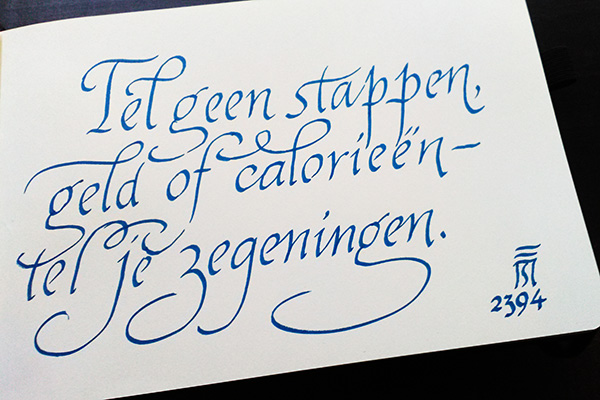 Tel geen stappen,
geld of calorieën–
tel je zegeningen.
2394